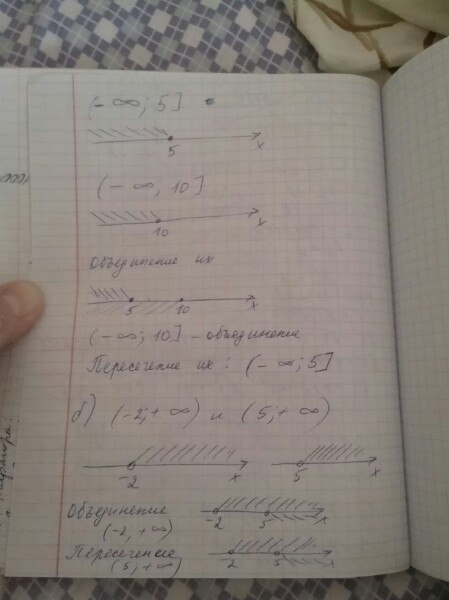 (-∞; 5]
5 x
(-∞; 10]
10 x
Объединение их
5 10 x
(-∞; 10] - объединение
Пересечение их: (-∞; 5]
б) (-2; +∞) и (5; +∞)
-2 x 5 x
Объединение -2 5 x
(-2; +∞)
Пересечение 2 5 x
(5; +∞)